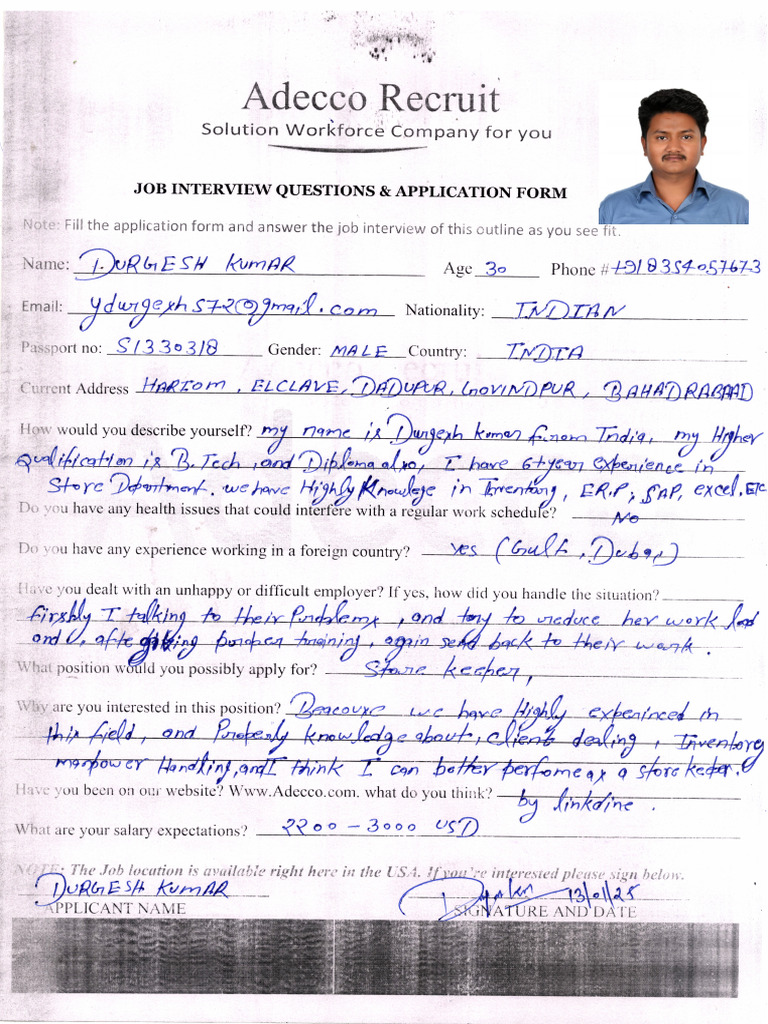 Adecco Recruit
Solution Workforce Company for you
JOB INTERVIEW QUESTIONS & APPLICATION FORM
Note: Fill the application form and answer the job interview of this outline as you see fit.
Name: DURGESH KUMAR Age 30 Phone # +918354057673
Email: ydurgesh572@gmail.com Nationality: INDIAN
Passport no: S1330318 Gender: MALE Country: INDIA
Current Address HARIOM, ELCLAVE, DADUPUR, GOVINDPUR, BAHADRABAAD
How would you describe yourself? my name is Durgesh kumar from India, my Higher
Qualification is B.Tech, and Diploma also, I have 6+year experience in
Store Department. we have Highly Knowlege in Inventory, E.R.P, SAP, excel. ETC
Do you have any health issues that could interfere with a regular work schedule? No
Do you have any experience working in a foreign country? yes (Gulf, Dubai)
Have you dealt with an unhappy or difficult employer? If yes, how did you handle the situation?
firshly I talking to their Problems, and try to reduce her work load
and, after giving proper training, again send back to their work.
What position would you possibly apply for? Store keeper,
Why are you interested in this position? Beacouse we have Highly experinced in
this field, and Properly knowledge about, client dealing, Inventory
manpower Handling, and I think I can better perfome as a store keeper.
Have you been on our website? Www.Adecco.com. what do you think? by linkdine.
What are your salary expectations? 2200 - 3000 USD
NOTE: The Job location is available right here in the USA. If you're interested please sign below.
DURGESH KUMAR 13/01/25
APPLICANT NAME SIGNATURE AND DATE